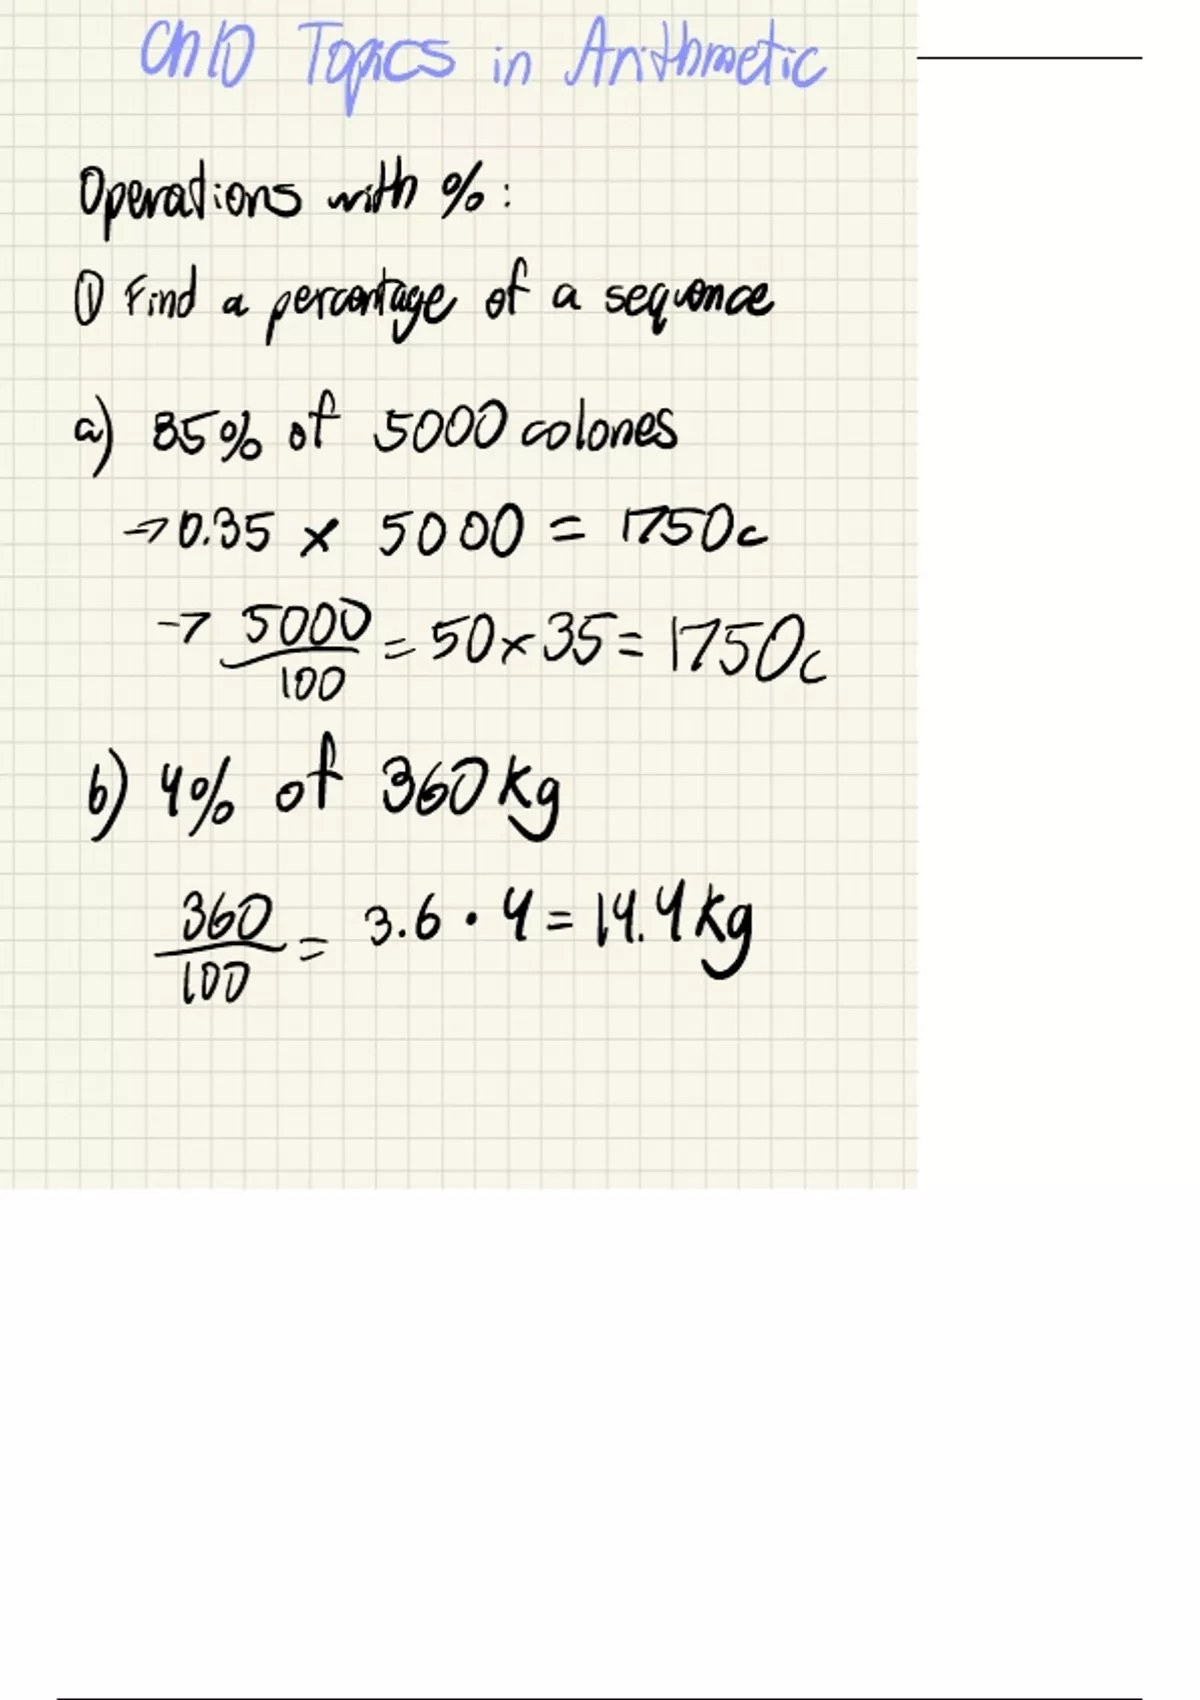 Ch10 Topics in Arithmetic
Operations with %:
① Find a percentage of a sequence
a) 35% of 5000 colones
→ 0.35 × 5000 = 1750c
→ 5000/100 = 50 × 35 = 1750c
b) 4% of 360 kg
360/100 = 3.6 · 4 = 14.4 kg